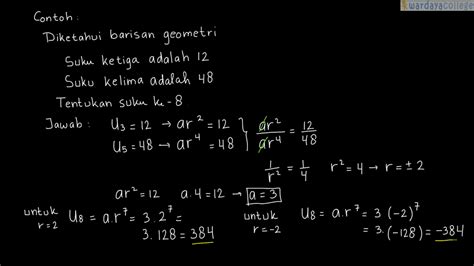 wardayacollege
Contoh:
Diketahui barisan geometri
Suku ketiga adalah 12
Suku kelima adalah 48
Tentukan suku ke-8
Jawab: U₃ = 12 → ar² = 12 } ar²/ar⁴ = 12/48
U₅ = 48 → ar⁴ = 48
1/r² = 1/4 r² = 4 → r = ± 2
ar² = 12 a.4 = 12 → a = 3
untuk r=2 U₈ = a.r⁷ = 3.2⁷ =
3.128 = 384
untuk r=-2 U₈ = a.r⁷ = 3(-2)⁷
= 3.(-128) = -384